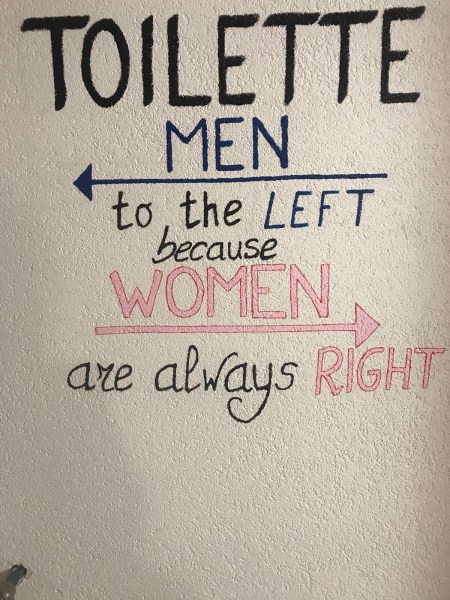 TOILETTE
MEN
to the LEFT
because
WOMEN
are always RIGHT